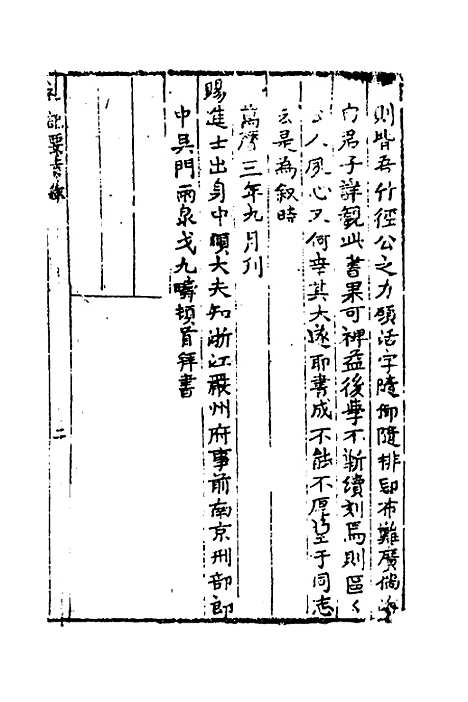 則皆吾竹徑公之力頭活字隨御隨排印布難廣倘
內君子詳觀此書果可裨益後學不斬續刻焉則區〻
人夙心又何幸其大遂耶書成不能不厚望于同志
云是為叙時
萬曆三年九月刊
賜進士出身中順大夫知浙江嚴州府事前南京刑部郎
中吳門兩泉戈九疇頓首拜書
禮記要旨
二